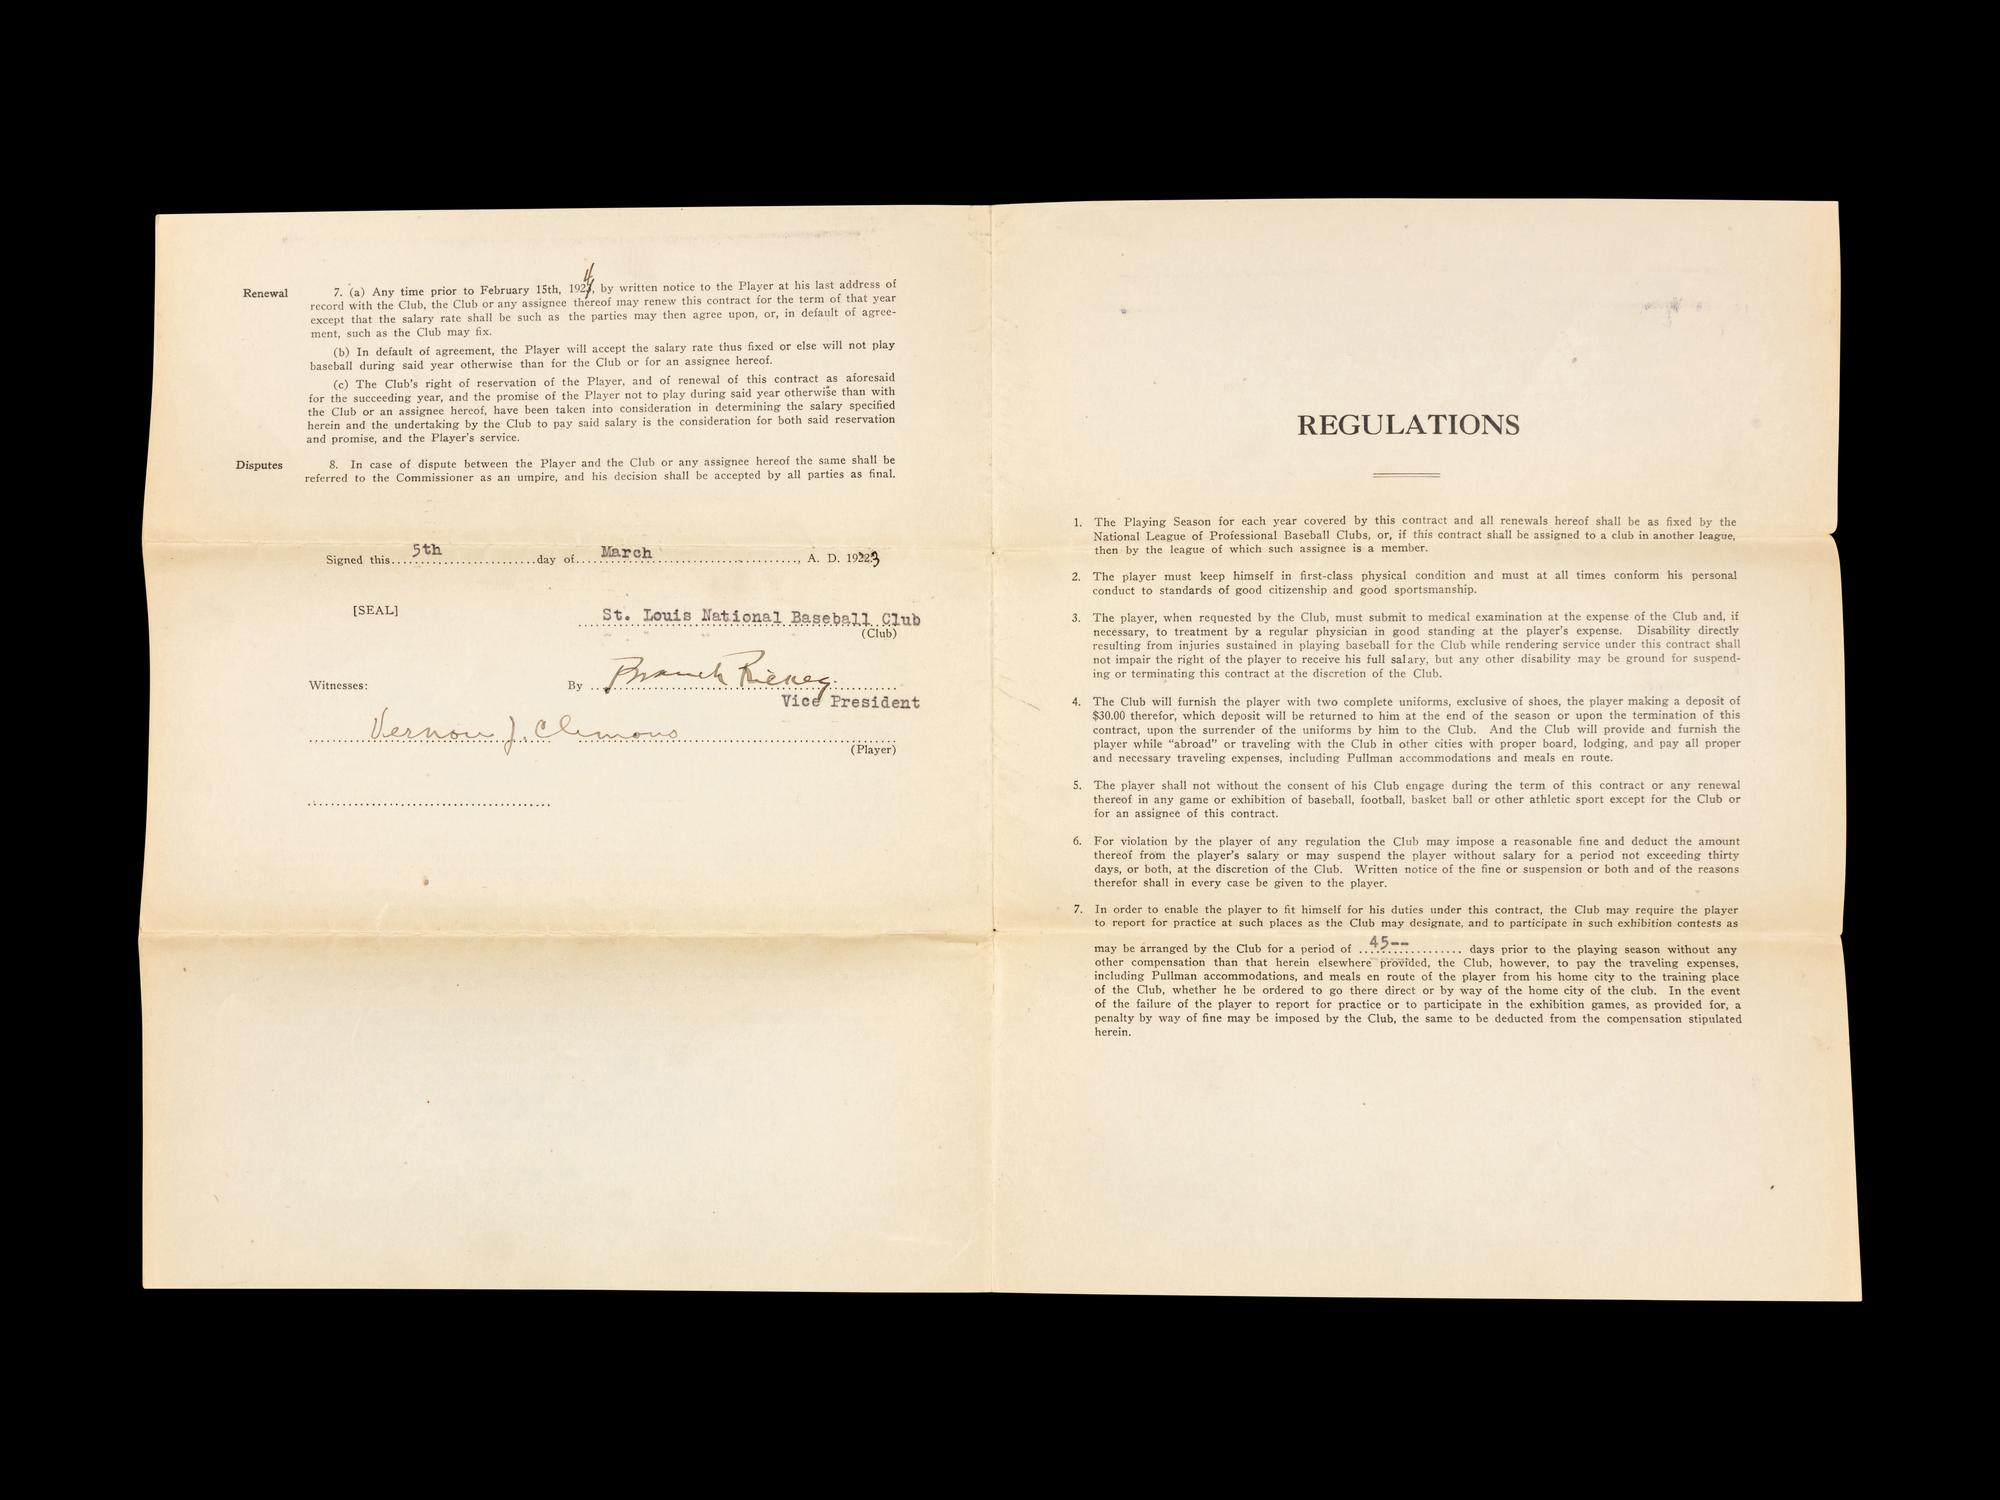 Renewal
7. (a) Any time prior to February 15th, 1924, by written notice to the Player at his last address of
record with the Club, the Club or any assignee thereof may renew this contract for the term of that year
except that the salary rate shall be such as the parties may then agree upon, or, in default of agree-
ment, such as the Club may fix.
(b) In default of agreement, the Player will accept the salary rate thus fixed or else will not play
baseball during said year otherwise than for the Club or for an assignee hereof.
(c) The Club's right of reservation of the Player, and of renewal of this contract as aforesaid
for the succeeding year, and the promise of the Player not to play during said year otherwise than with
the Club or an assignee hereof, have been taken into consideration in determining the salary specified
herein and the undertaking by the Club to pay said salary is the consideration for both said reservation
and promise, and the Player's service.
Disputes
8. In case of dispute between the Player and the Club or any assignee hereof the same shall be
referred to the Commissioner as an umpire, and his decision shall be accepted by all parties as final.
Signed this 5th day of March, A. D. 1923
[SEAL]
St. Louis National Baseball Club
(Club)
Witnesses:
By Branch Rickey
Vice President
Vernon J. Clemons
(Player)
REGULATIONS
1. The Playing Season for each year covered by this contract and all renewals hereof shall be as fixed by the
National League of Professional Baseball Clubs, or, if this contract shall be assigned to a club in another league,
then by the league of which such assignee is a member.
2. The player must keep himself in first-class physical condition and must at all times conform his personal
conduct to standards of good citizenship and good sportsmanship.
3. The player, when requested by the Club, must submit to medical examination at the expense of the Club and, if
necessary, to treatment by a regular physician in good standing at the player's expense. Disability directly
resulting from injuries sustained in playing baseball for the Club while rendering service under this contract shall
not impair the right of the player to receive his full salary, but any other disability may be ground for suspend-
ing or terminating this contract at the discretion of the Club.
4. The Club will furnish the player with two complete uniforms, exclusive of shoes, the player making a deposit of
$30.00 therefor, which deposit will be returned to him at the end of the season or upon the termination of this
contract, upon the surrender of the uniforms by him to the Club. And the Club will provide and furnish the
player while "abroad" or traveling with the Club in other cities with proper board, lodging, and pay all proper
and necessary traveling expenses, including Pullman accommodations and meals en route.
5. The player shall not without the consent of his Club engage during the term of this contract or any renewal
thereof in any game or exhibition of baseball, football, basket ball or other athletic sport except for the Club or
for an assignee of this contract.
6. For violation by the player of any regulation the Club may impose a reasonable fine and deduct the amount
thereof from the player's salary or may suspend the player without salary for a period not exceeding thirty
days, or both, at the discretion of the Club. Written notice of the fine or suspension or both and of the reasons
therefor shall in every case be given to the player.
7. In order to enable the player to fit himself for his duties under this contract, the Club may require the player
to report for practice at such places as the Club may designate, and to participate in such exhibition contests as
may be arranged by the Club for a period of 45-- days prior to the playing season without any
other compensation than that herein elsewhere provided, the Club, however, to pay the traveling expenses,
including Pullman accommodations, and meals en route of the player from his home city to the training place
of the Club, whether he be ordered to go there direct or by way of the home city of the club. In the event
of the failure of the player to report for practice or to participate in the exhibition games, as provided for, a
penalty by way of fine may be imposed by the Club, the same to be deducted from the compensation stipulated
herein.